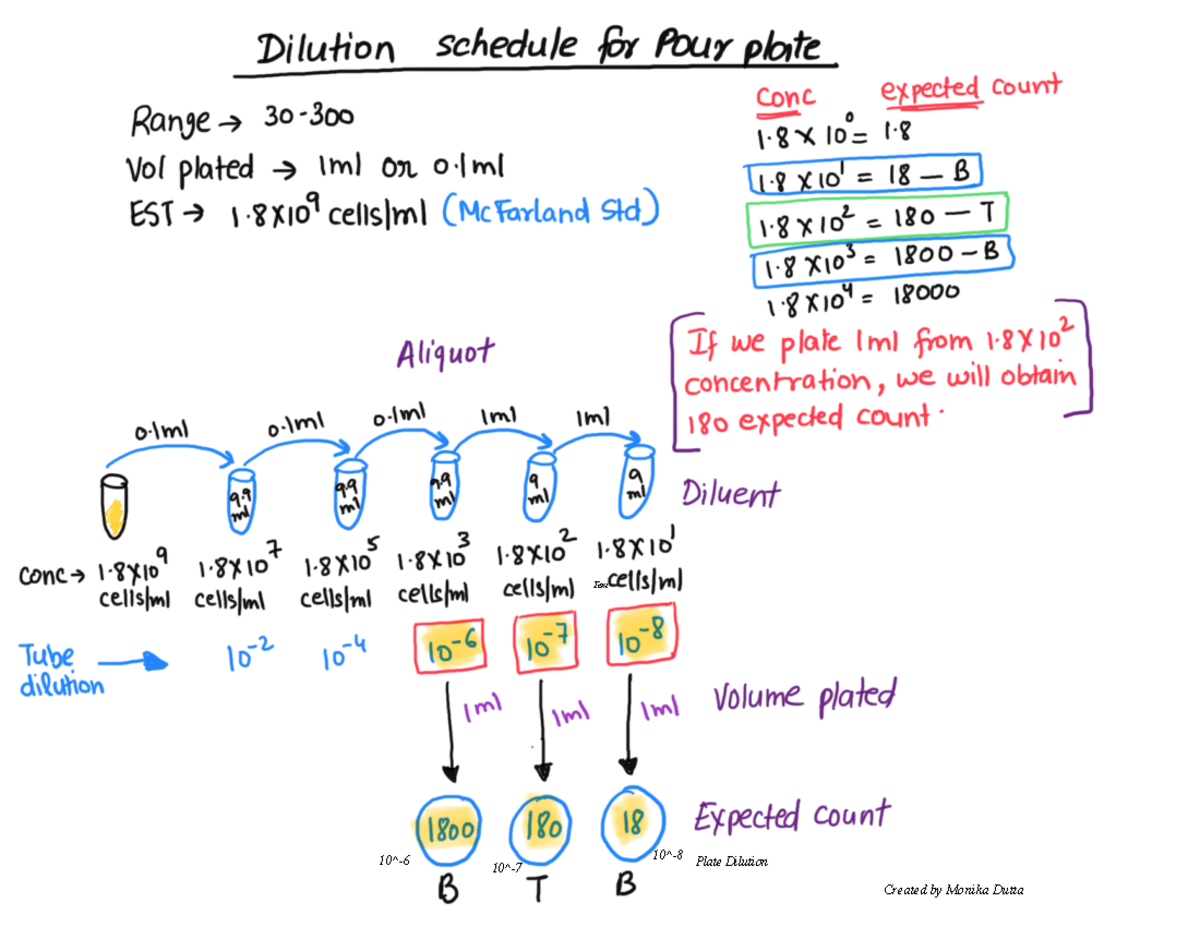 Dilution schedule for Pour plate
Range → 30-300
Vol plated → 1ml or 0.1ml
EST → 1.8X10⁹ cells/ml (McFarland Std)
Conc expected count
1.8 X 10⁰ = 1.8
1.8 X10¹ = 18 – B
1.8 X10² = 180 – T
1.8 X10³ = 1800 – B
1.8 X10⁴ = 18000
[If we plate 1ml from 1.8X10²
concentration, we will obtain
180 expected count.]
Aliquot
0.1ml 0.1ml 0.1ml 1ml 1ml
9.9 ml 9.9 ml 9.9 ml 9 ml 9 ml Diluent
Conc → 1.8X10⁹ 1.8X10⁷ 1.8X10⁵ 1.8X10³ 1.8X10² 1.8X10¹
cells/ml cells/ml cells/ml cells/ml cells/ml cells/ml
Tube dilution → 10⁻² 10⁻⁴ 10⁻⁶ 10⁻⁷ 10⁻⁸
1ml 1ml 1ml Volume plated
1800 180 18 Expected count
10^-6 10^-7 10^-8 Plate Dilution
B T B
Created by Monika Dutta